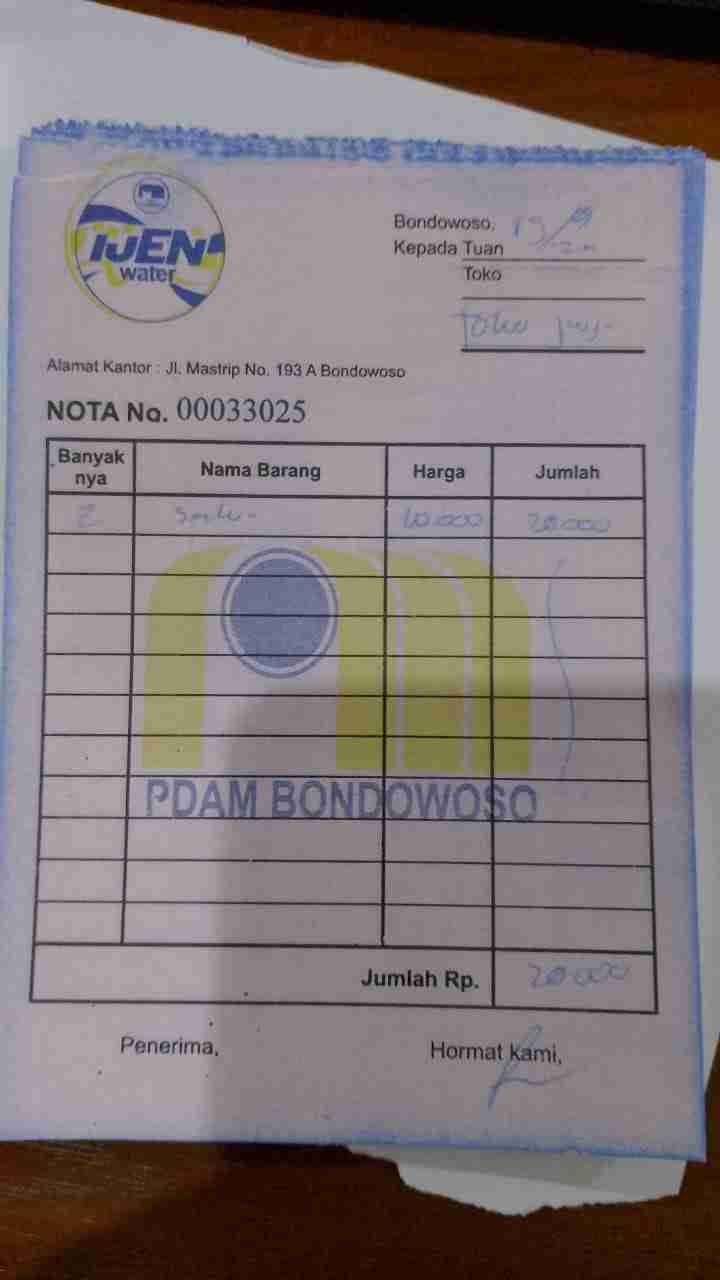 IJEN
water
Bondowoso, 19/09
Kepada Tuan
Toko
Toko
Alamat Kantor : Jl. Mastrip No. 193 A Bondowoso
NOTA No. 00033025
Banyak nya Nama Barang Harga Jumlah
2 10.000 20.000
PDAM BONDOWOSO
Jumlah Rp. 20.000
Penerima, Hormat kami,